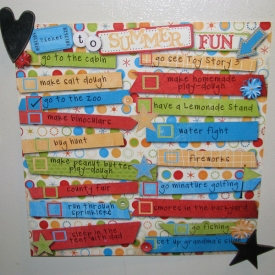 TICKET
to SUMMER FUN
go to the cabin
go see Toy Story 3
make salt dough
make homemade
play-dough
go to the zoo
have a Lemonade Stand
make binoculars
water fight
bug hunt
fireworks
make peanut butter
play-dough
county fair
go minature golfing
run through
sprinklers
s'mores in the backyard
go fishing
sleep in the
tent with dad
set up grandma's